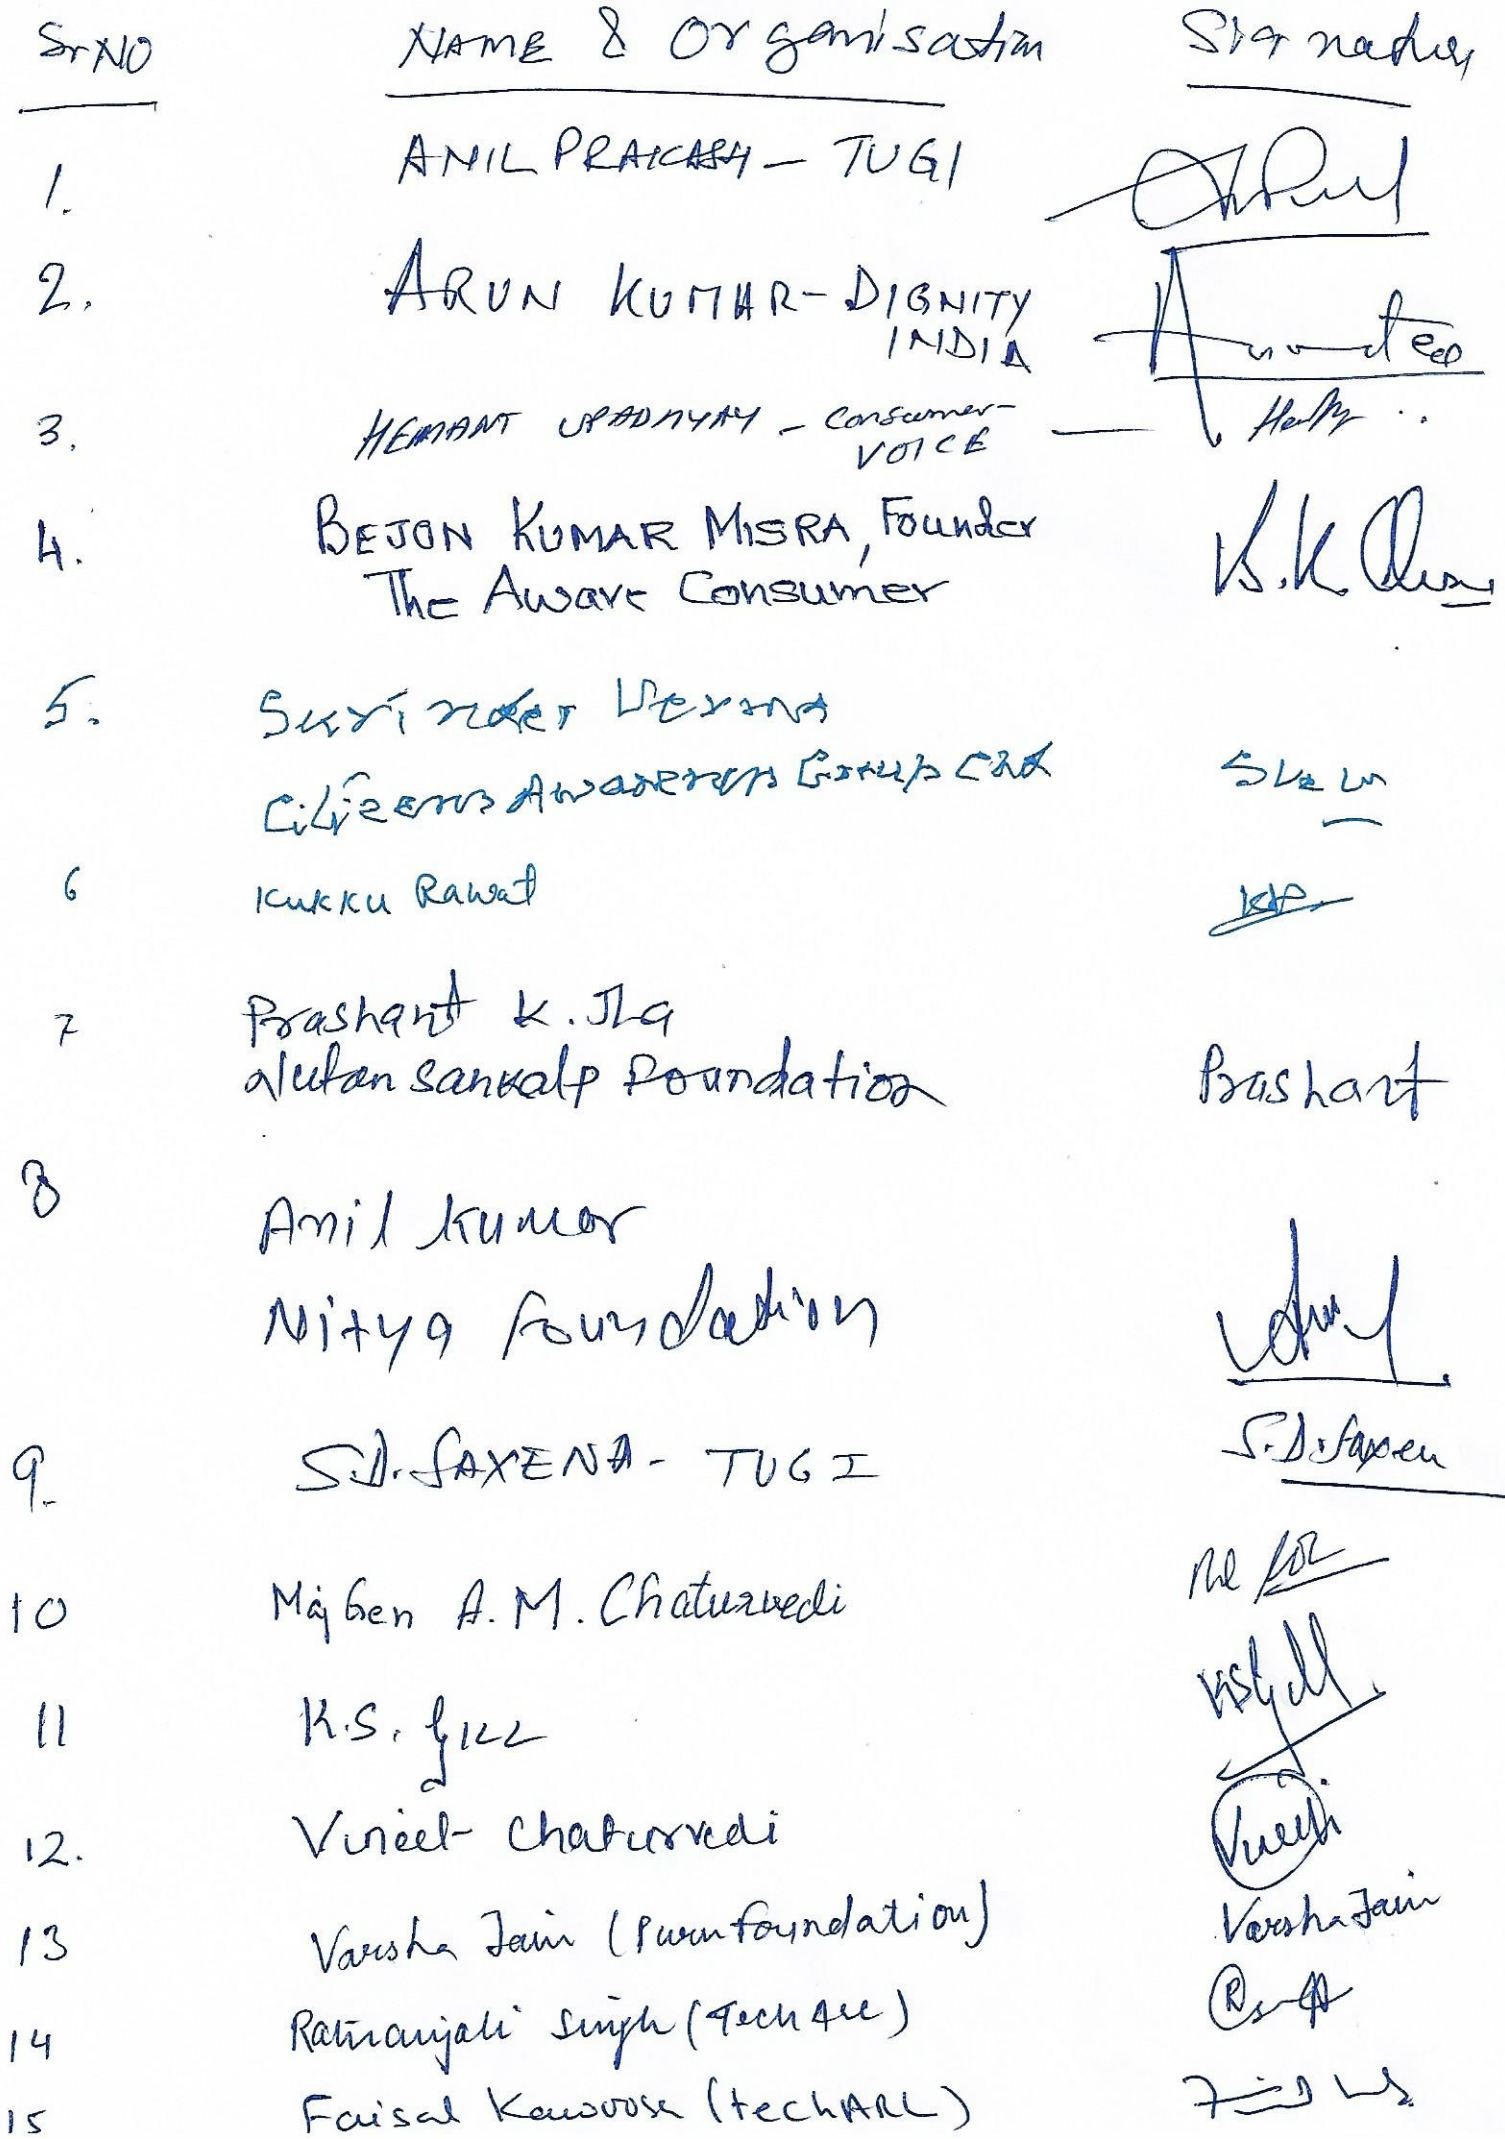 Sr NO NAME & Organisation Signature
1. ANIL PRAKASH - TUGI
2. ARUN KUMAR - DIGNITY
INDIA
3. HEMANT UPADHYAY - Consumer-
VOICE
4. BEJON KUMAR MISRA, Founder B.K.
The Aware Consumer
5. Surinder Verma
Citizens Awareness Group Chd
6 Kukku Rawat
7 Prashant K. Jha
Nutan Sankalp Foundation Prashant
8 Anil Kumar
Nitya foundation
9. S.D. SAXENA - TUGI S.D. Saxen
10 Maj Gen A.M. Chaturvedi
11 K.S. GILL
12. Vineet Chaturvedi Vineet
13 Varsha Jain (Purn foundation) Varsha Jain
14 Ratnanjali Singh (Tech ARC)
15 Faisal Kawoosa (techARC)